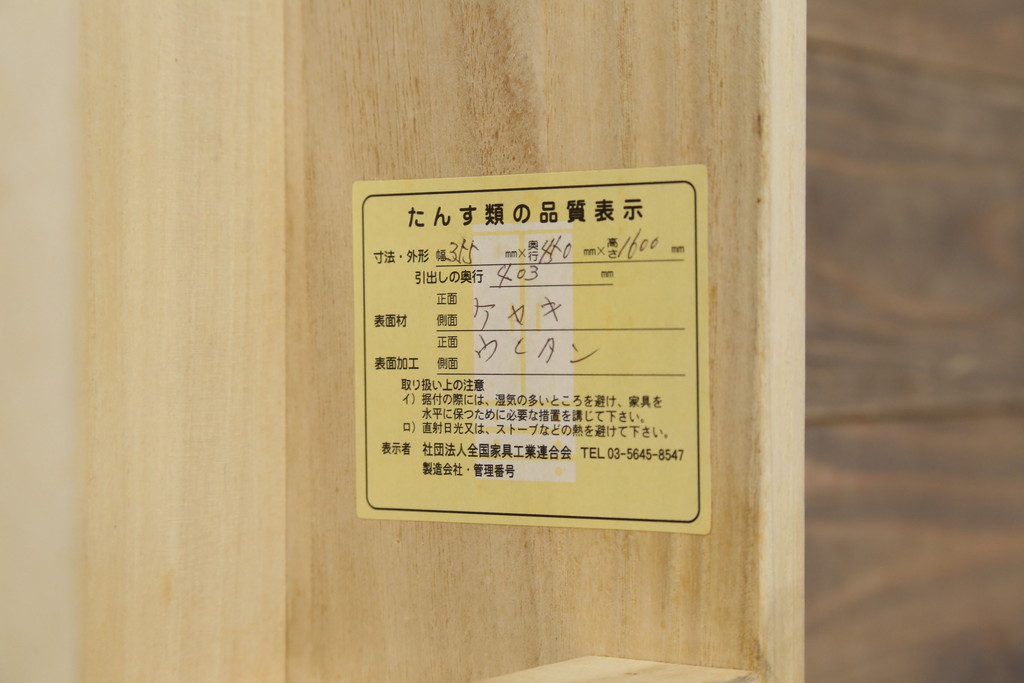 たんす類の品質表示
寸法・外形 幅355mm×奥行450mm×高さ1600mm
引出しの奥行 403mm
表面材 正面 側面 ケヤキ
表面加工 正面 側面 ウレタン
取り扱い上の注意
イ）据付の際には、湿気の多いところを避け、家具を
水平に保つために必要な措置を講じて下さい。
ロ）直射日光又は、ストーブなどの熱を避けて下さい。
表示者 社団法人全国家具工業連合会 TEL 03-5645-8547
製造会社・管理番号